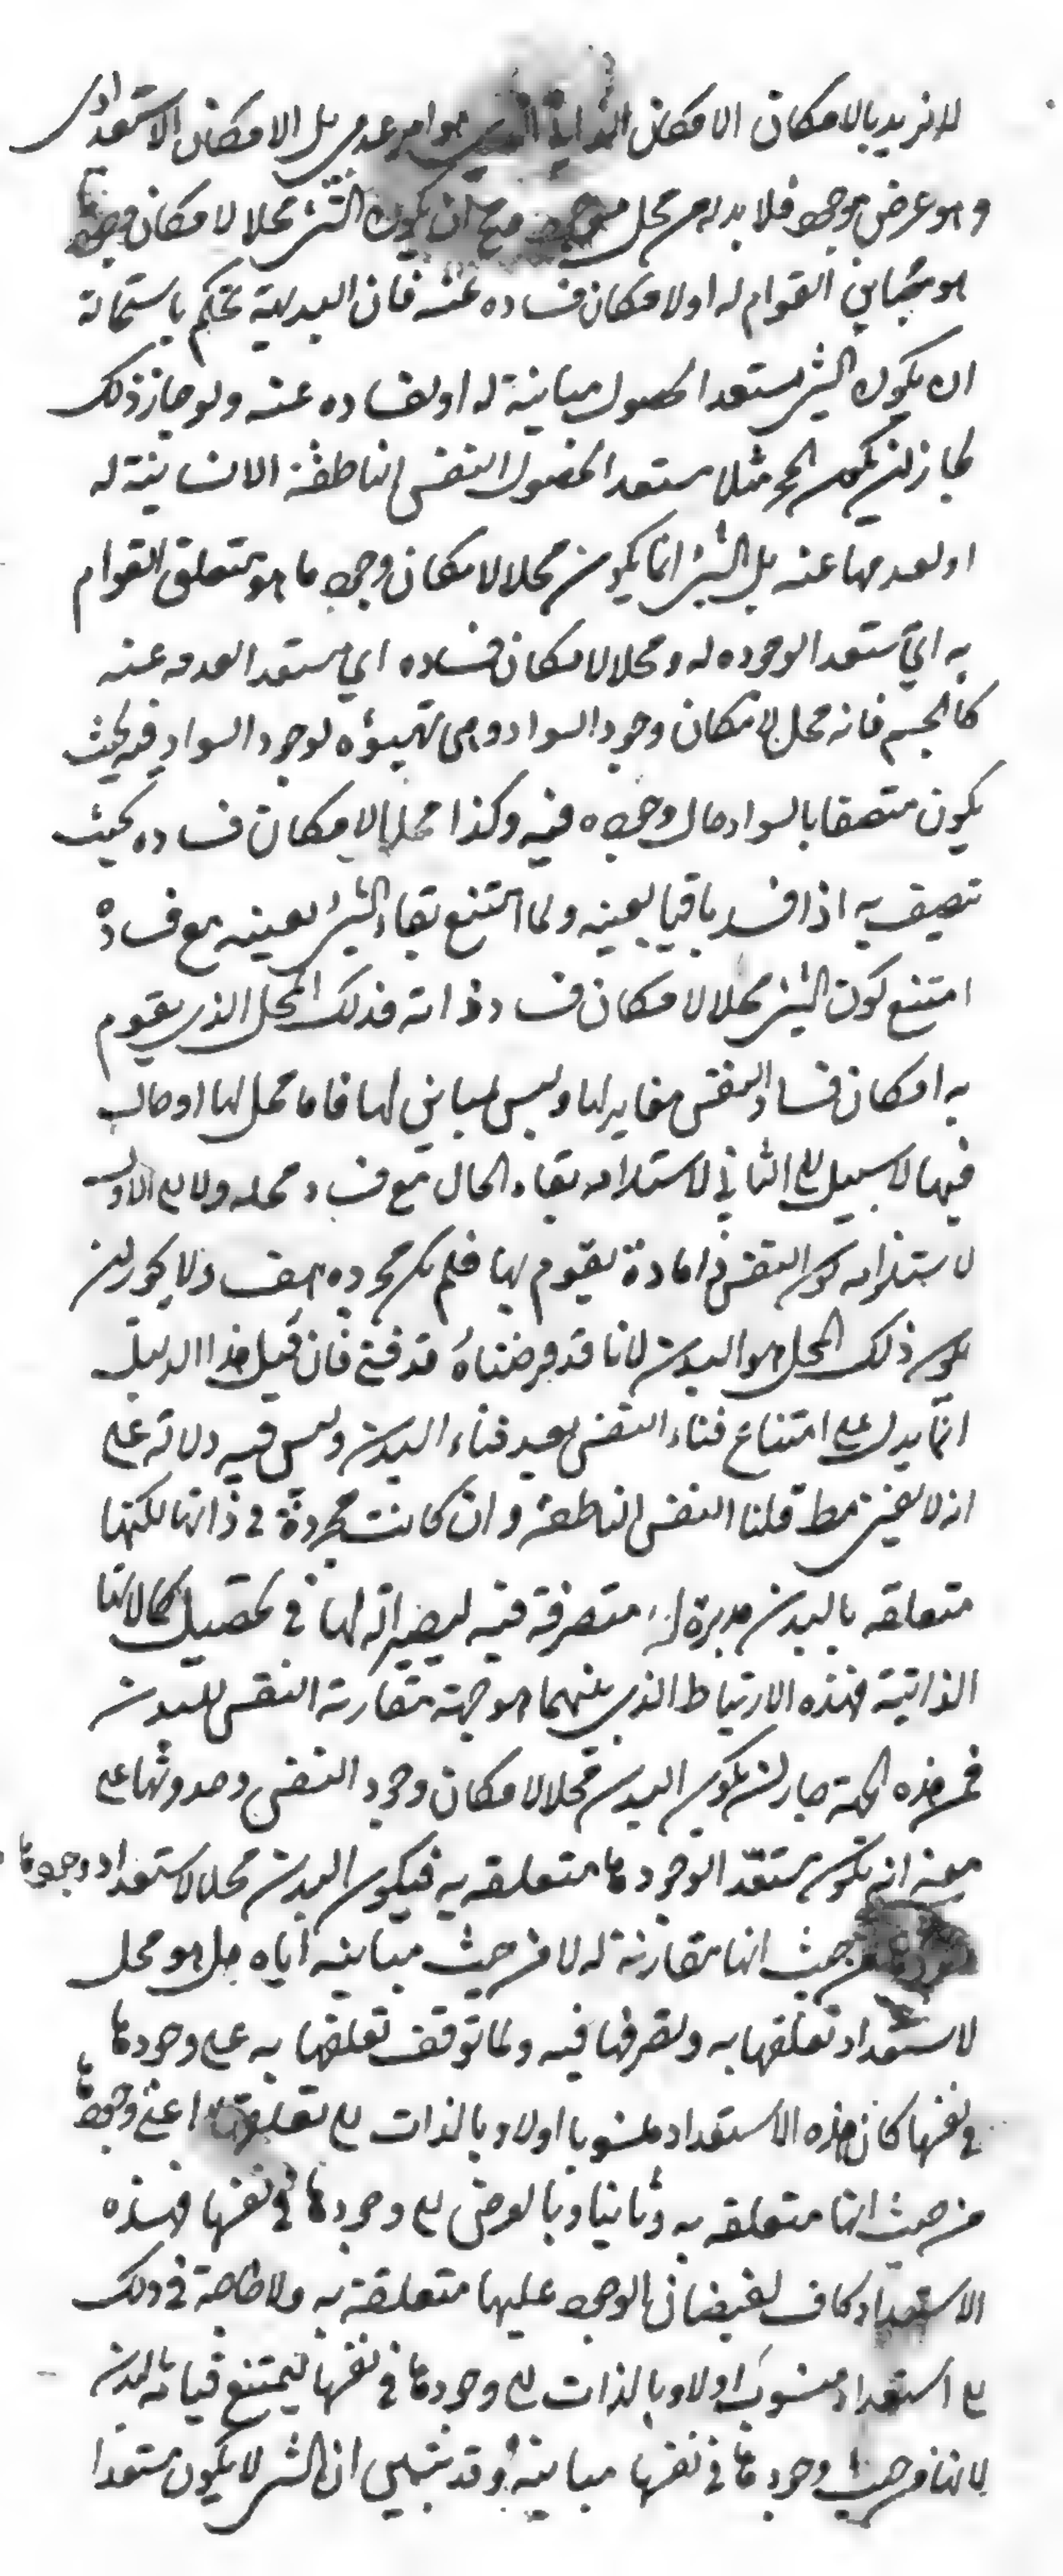 لا نريد بالامكان الامكان الذاتي الذي هو امر عدمي بل الامكان الاستعدادي
وهو عرض موجود فلا بد له من محل موجود فيمتنع ان يكون الشئ محلا لامكان وجود ما
هو مباين القوام له او لامكان فساده عنه فان البديهة تحكم باستحالة
ان يكون الشئ مستعدا لحصول مباينة له او لفساده عنه ولو جاز ذلك
لجاز ان يكون الحجر مثلا مستعدا لحصول النفس الناطقة الانسانية له
او لعدمها عنه بل الشئ انما يكون محلا لامكان وجود ما هو متعلق القوام
به اي مستعدا لوجوده له ومحلا لامكان فساده اي مستعدا لعدمه عنه
كالجسم فانه محل لامكان وجود السواد وهي تهيؤه لوجود السواد فيه بحيث
يكون متصفا بالسواد حال وجوده فيه وكذا محلا لامكان فساده بحيث
تصيف به اذا فسد باقيا بعينه ولما امتنع بقاء الشئ بعينه مع فساده
امتنع كون الشئ محلا لامكان فساد ذاته فذلك المحل الذي يقوم
به امكان فساد النفس مغاير لها وليس لمباين لها فاما محل لها او حال
فيها لا سبيل الى الثاني لاستلزامه بقاء الحال مع فساد محله ولا الى الاول
لاستلزامه كون النفس ذا مادة يقوم بها فلم يكن مجرده هف ولا يجوز ان
يكون ذلك المحل هو البدن لانا قد فرضناه قد فنى فان قيل هذا الدليل
انما يدل على امتناع فناء النفس بعد فناء البدن وليس فيه دلالة على
انه لا يفنى مط قلنا النفس الناطقة وان كانت مجردة في ذاتها لكنها
متعلقه بالبدن مدبرة له متصرفة فيه ليصير آلة لها في تحصيل كمالاتها
الذاتية فهذه الارتباط الذي بينهما هو جهة مقارنة النفس للبدن
فمن هذه الجهة جاز ان يكون البدن محلا لامكان وجود النفس وحدوثها على
معنى انه يكون مستعدا لوجودها متعلقه به فيكون البدن محلا لاستعداد وجودها
من حيث انها مقارنة له لا من حيث مباينه اياه بل هو محل
لاستعداد تعلقها به وتصرفها فيه ولما توقف تعلقها به على وجودها
في نفسها كان هذه الاستعداد منسوبا اولا وبالذات الى تعلقها اعني وجودها
من حيث انها متعلقه به وثانيا وبالعرض الى وجودها في نفسها فهذه
الاستعداد كاف لفيضان الوجود عليها متعلقة به ولا حاجة في ذلك
الى استعداد منسوب اولا وبالذات الى وجودها في نفسها ليمتنع قيامه بالبدن
لانها من حيث وجودها في نفسها مباينة وقد تبين ان الشئ لا يكون مستعدا